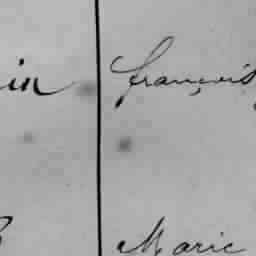 in François
Marie